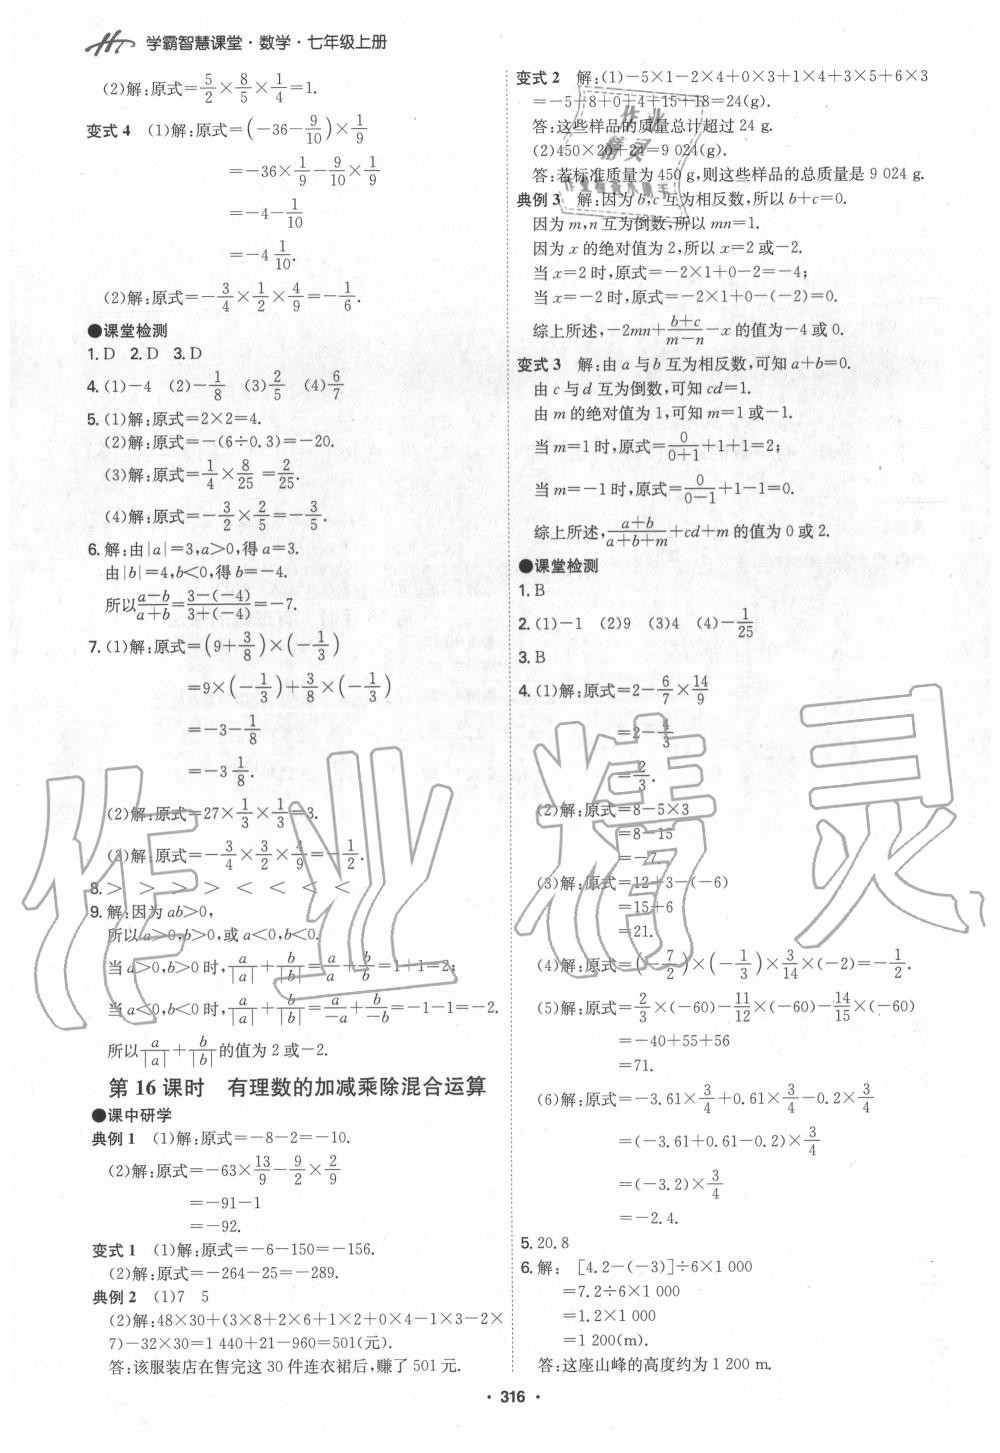 学霸智慧课堂·数学·七年级上册
(2)解:原式=5/2×8/5×1/4=1.
变式 4 (1)解:原式=(-36-9/10)×1/9
=-36×1/9-9/10×1/9
=-4-1/10
=-4 1/10.
(2)解:原式=-3/4×1/2×4/9=-1/6.
●课堂检测
1. D 2. D 3. D
4. (1)-4 (2)-1/8 (3)2/5 (4)6/7
5. (1)解:原式=2×2=4.
(2)解:原式=-(6÷0.3)=-20.
(3)解:原式=1/4×8/25=2/25.
(4)解:原式=-3/2×2/5=-3/5.
6. 解:由|a|=3,a>0,得 a=3.
由|b|=4,b<0,得 b=-4.
所以(a-b)/(a+b)=(3-(-4))/(3+(-4))=-7.
7. (1)解:原式=(9+3/8)×(-1/3)
=9×(-1/3)+3/8×(-1/3)
=-3-1/8
=-3 1/8.
(2)解:原式=27×1/3×1/3=3.
(3)解:原式=-3/4×3/2×4/9=-1/2.
8. > > > > < < < <
9. 解:因为 ab>0,
所以 a>0,b>0,或 a<0,b<0.
当 a>0,b>0 时,a/|a|+b/|b|=a/a+b/b=1+1=2;
当 a<0,b<0 时,a/|a|+b/|b|=a/-a+b/-b=-1-1=-2.
所以a/|a|+b/|b|的值为 2 或-2.
第 16 课时 有理数的加减乘除混合运算
●课中研学
典例 1 (1)解:原式=-8-2=-10.
(2)解:原式=-63×13/9-9/2×2/9
=-91-1
=-92.
变式 1 (1)解:原式=-6-150=-156.
(2)解:原式=-264-25=-289.
典例 2 (1)7 5
(2)解:48×30+(3×8+2×6+1×2+0×4-1×3-2×
7)-32×30=1 440+21-960=501(元).
答:该服装店在售完这 30 件连衣裙后,赚了 501 元.
变式 2 解:(1)-5×1-2×4+0×3+1×4+3×5+6×3
=-5-8+0+4+15+18=24(g).
答:这些样品的质量总计超过 24 g.
(2)450×20+24=9 024(g).
答:若标准质量为 450 g,则这些样品的总质量是 9 024 g.
典例 3 解:因为 b,c 互为相反数,所以 b+c=0.
因为 m,n 互为倒数,所以 mn=1.
因为 x 的绝对值为 2,所以 x=2 或-2.
当 x=2 时,原式=-2×1+0-2=-4;
当 x=-2 时,原式=-2×1+0-(-2)=0.
综上所述,-2mn+(b+c)/(m-n)-x 的值为-4 或 0.
变式 3 解:由 a 与 b 互为相反数,可知 a+b=0.
由 c 与 d 互为倒数,可知 cd=1.
由 m 的绝对值为 1,可知 m=1 或-1.
当 m=1 时,原式=0/(0+1)+1+1=2;
当 m=-1 时,原式=0/(0-1)+1-1=0.
综上所述,(a+b)/(a+b+m)+cd+m 的值为 0 或 2.
●课堂检测
1. B
2. (1)-1 (2)9 (3)4 (4)-1/25
3. B
4. (1)解:原式=2-6/7×14/9
=2-4/3
=2/3.
(2)解:原式=8-5×3
=8-15
=-7.
(3)解:原式=12+3-(-6)
=15+6
=21.
(4)解:原式=(-7/2)×(-1/3)×3/14×(-2)=-1/2.
(5)解:原式=2/3×(-60)-11/12×(-60)-14/15×(-60)
=-40+55+56
=71.
(6)解:原式=-3.61×3/4+0.61×3/4-0.2×3/4
=(-3.61+0.61-0.2)×3/4
=(-3.2)×3/4
=-2.4.
5. 20.8
6. 解: [4.2-(-3)]÷6×1 000
=7.2÷6×1 000
=1.2×1 000
=1 200(m).
答:这座山峰的高度约为 1 200 m.
· 316 ·
作业
精灵
作业检查小助手
作业精灵